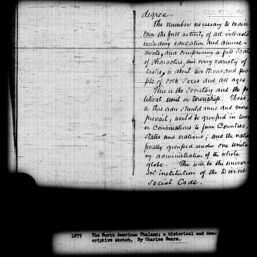 degree.
The number necessary to main-
tain the full activity of all interests
including education and amuse-
ments, and comprising a full scale
of characters, and every variety of
tastes, is about six thousand peo-
ple of both sexes and all ages.
This is the Societary and the po-
litical unit or township. These,
as this our should more and more
prevail, would be grouped in larger
or combinations to form Counties,
States and nations; and the nations
finally grouped under one Unita-
ry administration of the whole
globe. This will be the univer-
sal institution of the Divine
Social Code.
1879 The North American Phalanx; a historical and des-
criptive sketch. By Charles Sears.